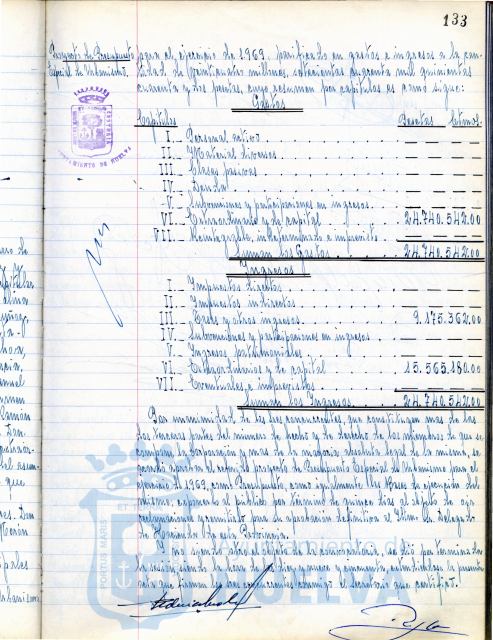 133
Proyecto de Presupuesto
Especial de Urbanismo.
para el ejercicio de 1969, nivelado en gastos e ingresos a la can-
tidad de millones, setecientas cuarenta mil quinientas
cuarenta y dos pesetas, cuyo resumen por capítulos es como sigue:
Gastos
Capítulos Pesetas Ctmos.
I.- Personal activo
II.- Material diversos
III.- Clases pasivas
IV.- Deuda
V.- Subvenciones y participaciones en ingresos
VI.- Extraordinarios y de capital 24.740.542.00
VII.- Reintegrables, indeterminados e imprevistos
Suman los Gastos 24.740.542.00
Ingresos
I.- Impuestos directos
II.- Impuestos indirectos
III.- Tasas y otros ingresos 9.175.362.00
IV.- Subvenciones y participaciones en ingresos
V.- Ingresos patrimoniales
VI.- Extraordinarios y de capital 15.565.180.00
VII.- Eventuales e imprevistos
Suman los Ingresos 24.740.542.00
Por unanimidad de los tres concurrentes, que constituyen más de las
dos terceras partes del número de hecho y de derecho de los miembros de que se
compone la Corporación y más de la mayoría absoluta legal de la misma, se
acordó aprobar el referido proyecto de Presupuesto Especial de Urbanismo para el
ejercicio de 1969, como Presupuesto, como igualmente las Bases de ejecución del
mismo, exponerlo al público por término de quince días al objeto de oír
reclamaciones y remitirlo para su aprobación definitiva al Iltmo. Sr. Delegado
de Hacienda de esta Provincia.
Y no siendo otro el objeto de la convocatoria, se dió por terminada
la sesión siendo la hora de las y cuarenta, extendiéndose la presente
acta que firman los tres concurrentes conmigo el Secretario que certifico.
AYUNTAMIENTO DE HUELVA
PORTUS MARIS
Ayuntamiento de
HUELVA